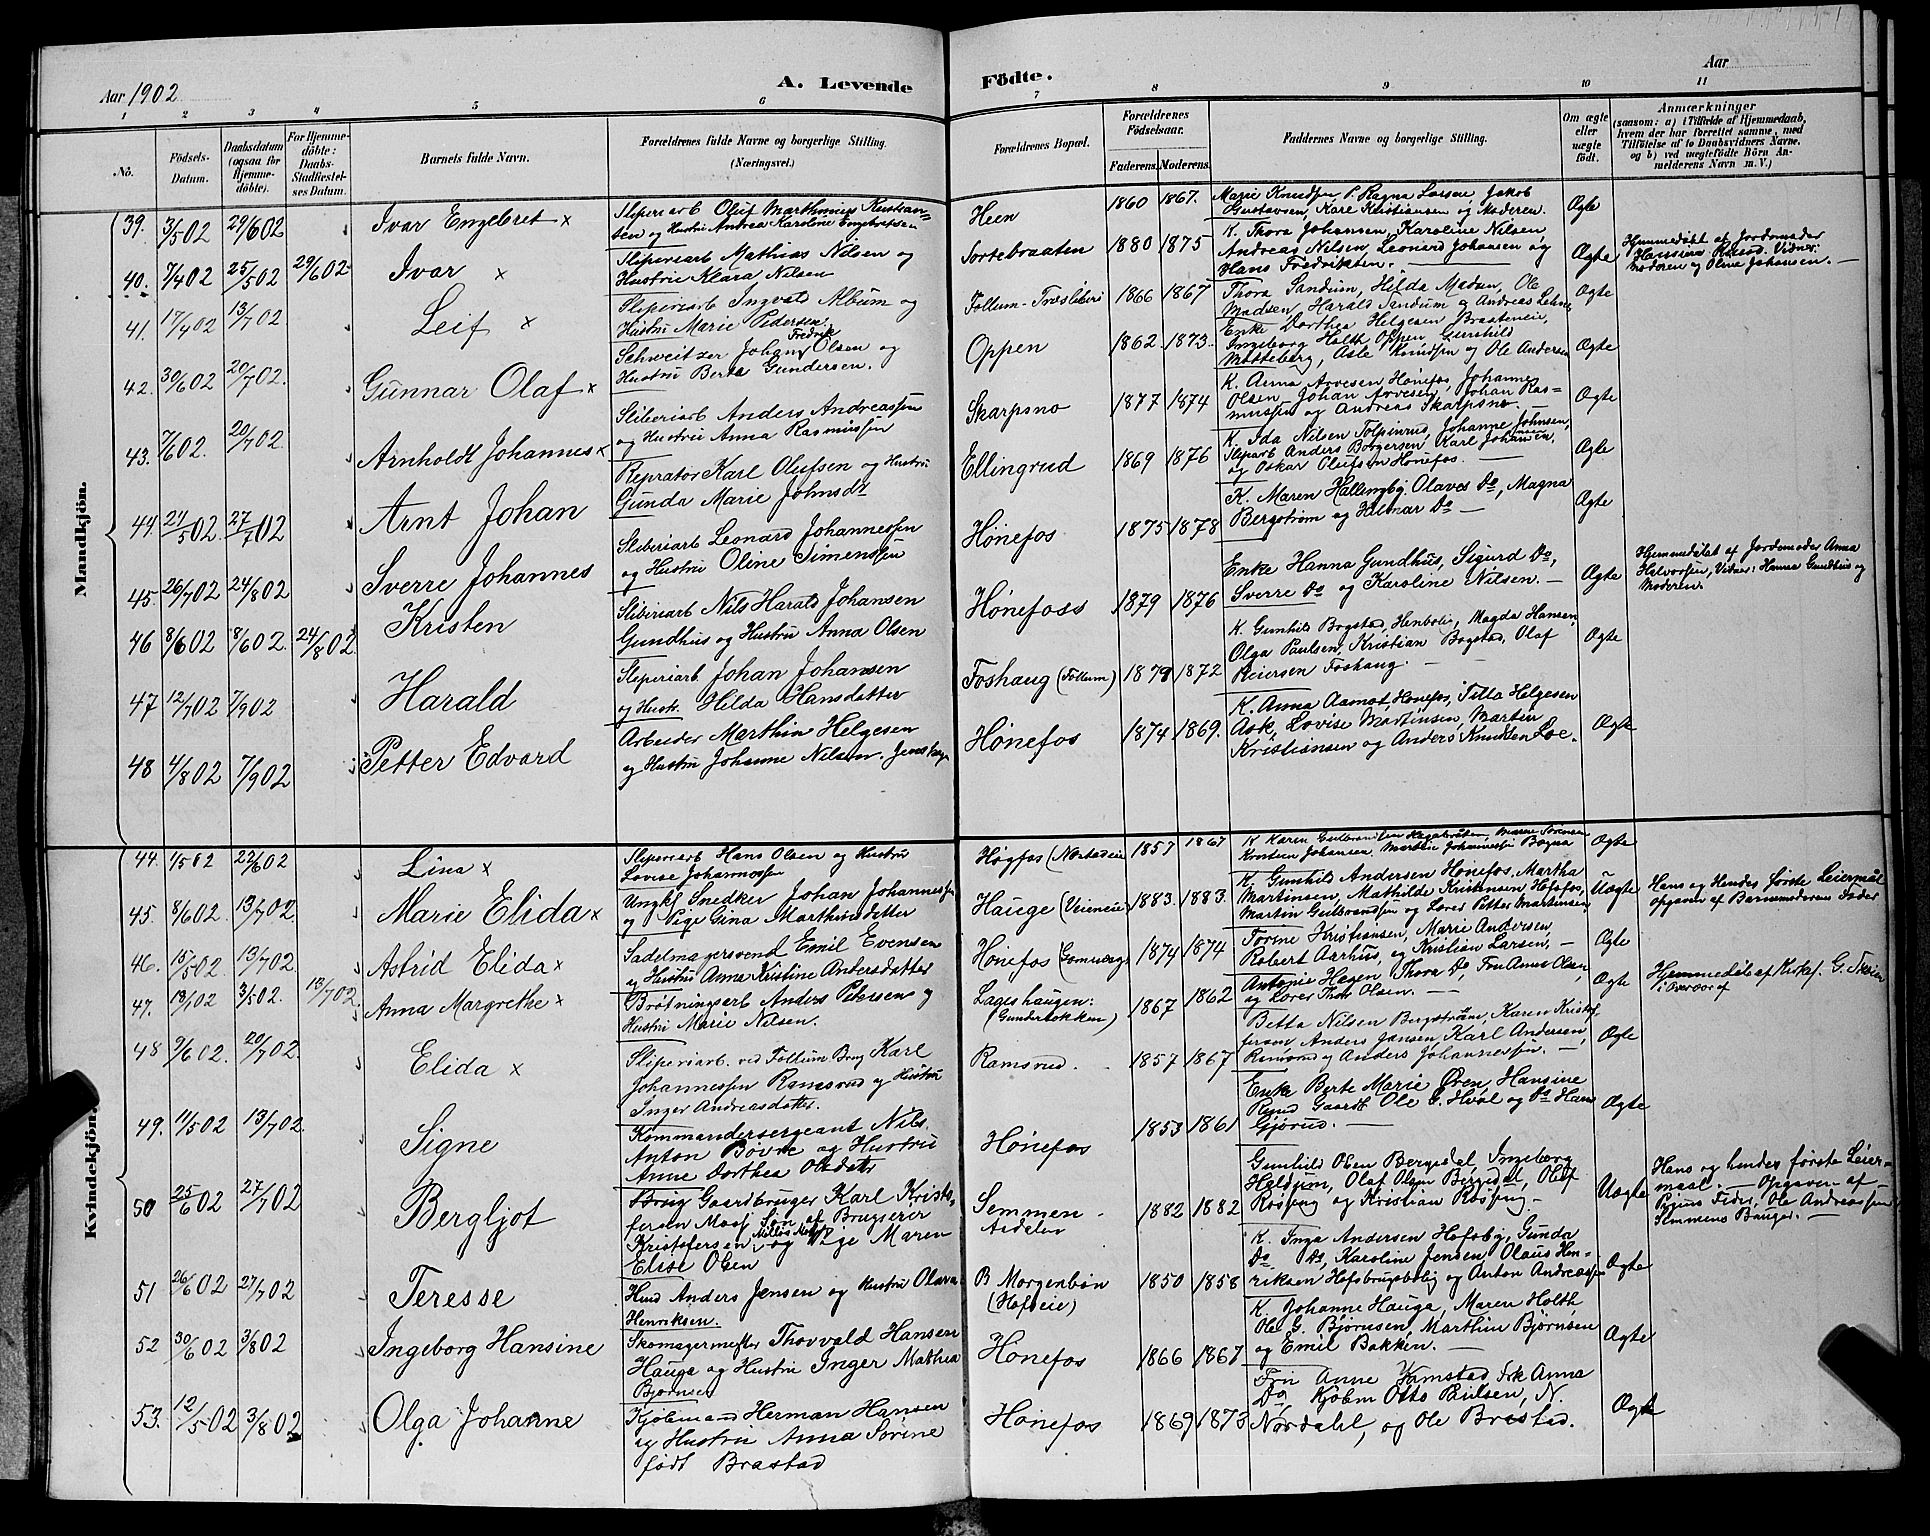 Aar 1902
A. Levende Födte.
Aar
1 2 3 4 5 6 7 8 9 10 11
Nò. Födsels-Datum. Daabsdatum (ogsaa for Hjemmedöbte). For Hjemmedöbte: Daabs-Stadfæstelses Datum. Barnets fulde Navn. Forældrenes fulde Navne og borgerlige Stilling. (Næringsvei.) Forældrenes Bopæl. Forældrenes Födselsaar. Faderens. Moderens. Faddernes Navne og borgerlige Stilling. Om ægte eller uægte födt. Anmærkninger (saasom: a) i Tilfælde af Hjemmedaab, hvem der har forrettet samme, med Tilföielse af to Daabsvidners Navne, og b) ved uægtefödte Börn Anmelderens Navn m. V.)
Mandkjön.
39. 3/5 02 29/6 02 Ivar Engebret x Sliperiarb Oluf Marthinius Kristiansen og Hustru Andrea Karoline Engebretsen Heen 1860 1867. Marie Knudsen, P. Ragna Larsen, Jakob Gustavsen, Karl Kristiansen og Moderen. Ægte
40. 7/4 02 25/5 02 29/6 02 Ivar x Sliperiarb Mathias Nilsen og Hustru Klara Nilsen Sortebraaten 1880 1875 K. Thora Johansen, Karoline Nilsen, Andreas Nilsen, Leonard Johansen og Hans Fredriksen. Ægte Hjemmedøbt af Jordemoder Hansine Vidner: Moderen og Oline Johansen.
41. 17/4 02 13/7 02 Leif x Sliperiarb Ingvald Album og Hustru Marie Pedersen. Follum Træsliberi 1866 1867 Thora Sandum, Hilda Madsen, Ole Madsen, Harald Sandum og Andreas Ægte
42. 30/6 02 20/7 02. Gunnar Olaf x Schweitzer Johan Fredrik Olsen og Hustru Berta Gundersen. Oppen 1862 1873. Enke Dorthea Helgesen Braateneie, Ingeborg Holth Oppen, Gunhild Mosteberg, Asle Knudsen og Ole Andersen Ægte
43. 7/6 02. 20/7 02. Arnholdt Johannes x Sliberiarb Anders Andreassen og Hustru Anna Rasmussen Skarpsno 1877 1874 K. Anna Arvesen Hønefos, Johanne Olsen, Johan Arvesen, Johan Rasmussen og Andreas Skarpsno. Ægte
44. 24/5 02. 27/7 02 Arnt Johan Reprator Karl Olufsen og Hustru Gunda Marie Johnsdt Ellingrud 1869 1876 K. Ida Nilsen Tolpinrud, Johanne Johnsen, Sliparb Anders Borgersen, Karl Johansen, og Oskar Olufsen Hønefos. Ægte
45. 26/7 02 24/8 02 Sverre Johannes Sliberiarb Leonard Johannessen og Hustru Oline Simensen Hønefos 1875 1878 K. Maren Hallingby, Olaves Do, Magna Bergstrøm og Hilmar Do Ægte
46 8/6 02 8/6 02. 24/8 02. Kristen Sliberiarb Nils Harald Johansen Gundhus og Hustru Anna Olsen Hønefoss 1879 1876 Enke Hanna Gundhus, Sigurd Do, Sverre Do og Karoline Nilsen. Ægte Hjemmedøbt af Jordemoder Anna Halvorsen, Vidner: Hanna Gundhus og Moderen.
47 12/7 02 7/9 02 Harald Sliperiarb. Johan Johansen og Hustr. Hilda Hansdatter Foshaug (Follum) 1879 1872 K. Gunhild Bogstad, Henboli, Magda Hansen, Olga Paulsen, Kristian Bogstad, Olaf Reiersen Foshaug. Ægte
48 4/8 02 7/9 02 Petter Edvard Arbeider Marthin Helgesen og Hustru Johanne Nilsen. Hønefos 1874 1869. K. Anna Aamot, Hønefos, Titta Helgesen Ask, Lovise Martinsen, Martin Kristiansen og Anders Knudsen Loe. Ægte
Kvindekjön.
44. 4/5 02 22/6 02 Lina x Sliperiarb Hans Olsen og Hustru Lovise Johannessen Høgfos (Norderhov) 1857 1867 K Karen Gulbrandsen Maren Sørensen Kristian Johansen. Marthin Johannessen Ægte
45. 8/6 02. 13/7 02. Marie Elida x Ungkl Snedker Johan Johannessen Pige Gina Marthinsdatter Hauge (Veieneie) 1883. 1883. K. Gunhild Andersen Hønefos, Martha Martinsen, Mathilde Kristensen Hofsfos, Martin Gulbrandsen og Lærer Petter Martinsen, Uægte Hans og Hendes første Leiermål opgaven af Barnemoderens Fader
46. 15/5 02. 13/7 02. Astrid Elida x Sadelmagersvend Emil Evensen og Hustru Anna Kristine Andersdatter Hønefos 1874 1874 Torine Kristiansen, Marie Andersen, Robert Aarhus, og Kristian Larsen. Ægte
47. 13/1 02 3/5 02. 13/7 02. Anna Margrethe x Brøtningsarb Anders Petersen og Hustru Marie Nilsen. Lageshaugen: (Gunderlokken) 1867 1862 Antonie Hagen, Thora Do, Fru Anne Olsen, og Lærer Thor Olsen. Ægte Hjemmedøbt af
48 9/6 02. 20/7 02. Elida x Sliperiarb. ved Follum Brug Karl Johannessen Ramsrud og Hustru Inger Andreasdatter. Ramsrud. 1857 1867 Betta Nilsen Bergstrøm, Karen Kristofferson, Anders Jansen, Karl Andersen, Ramsrud og Anders Johannessen. Ægte
49. 11/5 02 13/7 02 Signe Kommandersergeant Nils Anton Bøvre og Hustru Anne Dorthea Olsdatr Hønefos 1853 1861 Enke Berte Marie Øren, Hansine Rund Gaardb Ole G. Hval og Do Hans Gjørud. Ægte
50 25/6 02 27/7 02 Bergljot Gaardbruger Karl Kristoffersen Moss Søn af Brugseier Kristofersen og Pige Maren Elise Olsen Semmen Aadalen 1882 1882 Gunhild Olsen Bergsdal, Ingeborg Heldgum, Olaf Olsen Bergsdal, Olaf Røssing og Kristian Røssing. Uægte Hans og hendes første Leiermaal. Opgaven af Pigens Fader, Ole Andreassen Semmens Bauger.
51 26/6 02 27/7 02 Teresse Husd Anders Jensen og Hustru Olava Henriksen. B Morgenbøn (Hofseie) 1850 1858 K. Inga Andersen Hofsby, Gunda Do Do, Karoline Jensen Olaus Henriksen Hofsbrugsbolig og Anton Andreassen Ægte
52 30/6 02 3/8 02 Ingeborg Hansine Skomagermester Thorvald Hansen Hauga og Hustru Inger Mathea Bjørnsen Hønefos 1866 1867 K. Johanne Hauga, Maren Holth, Ole G. Bjørnsen, Marthin Bjørnsen og Emil Bakken. Ægte
53. 12/5 02 3/8 02 Olga Johanne Kjøbmand Herman Hansen og Hustru Anna Sørine født Brøstad Hønefos 1869 1873 Fru Anne Frk Anna Do Kjøbm Otto Bulsen, N. Nordahl, og Ole Brøstad. Ægte